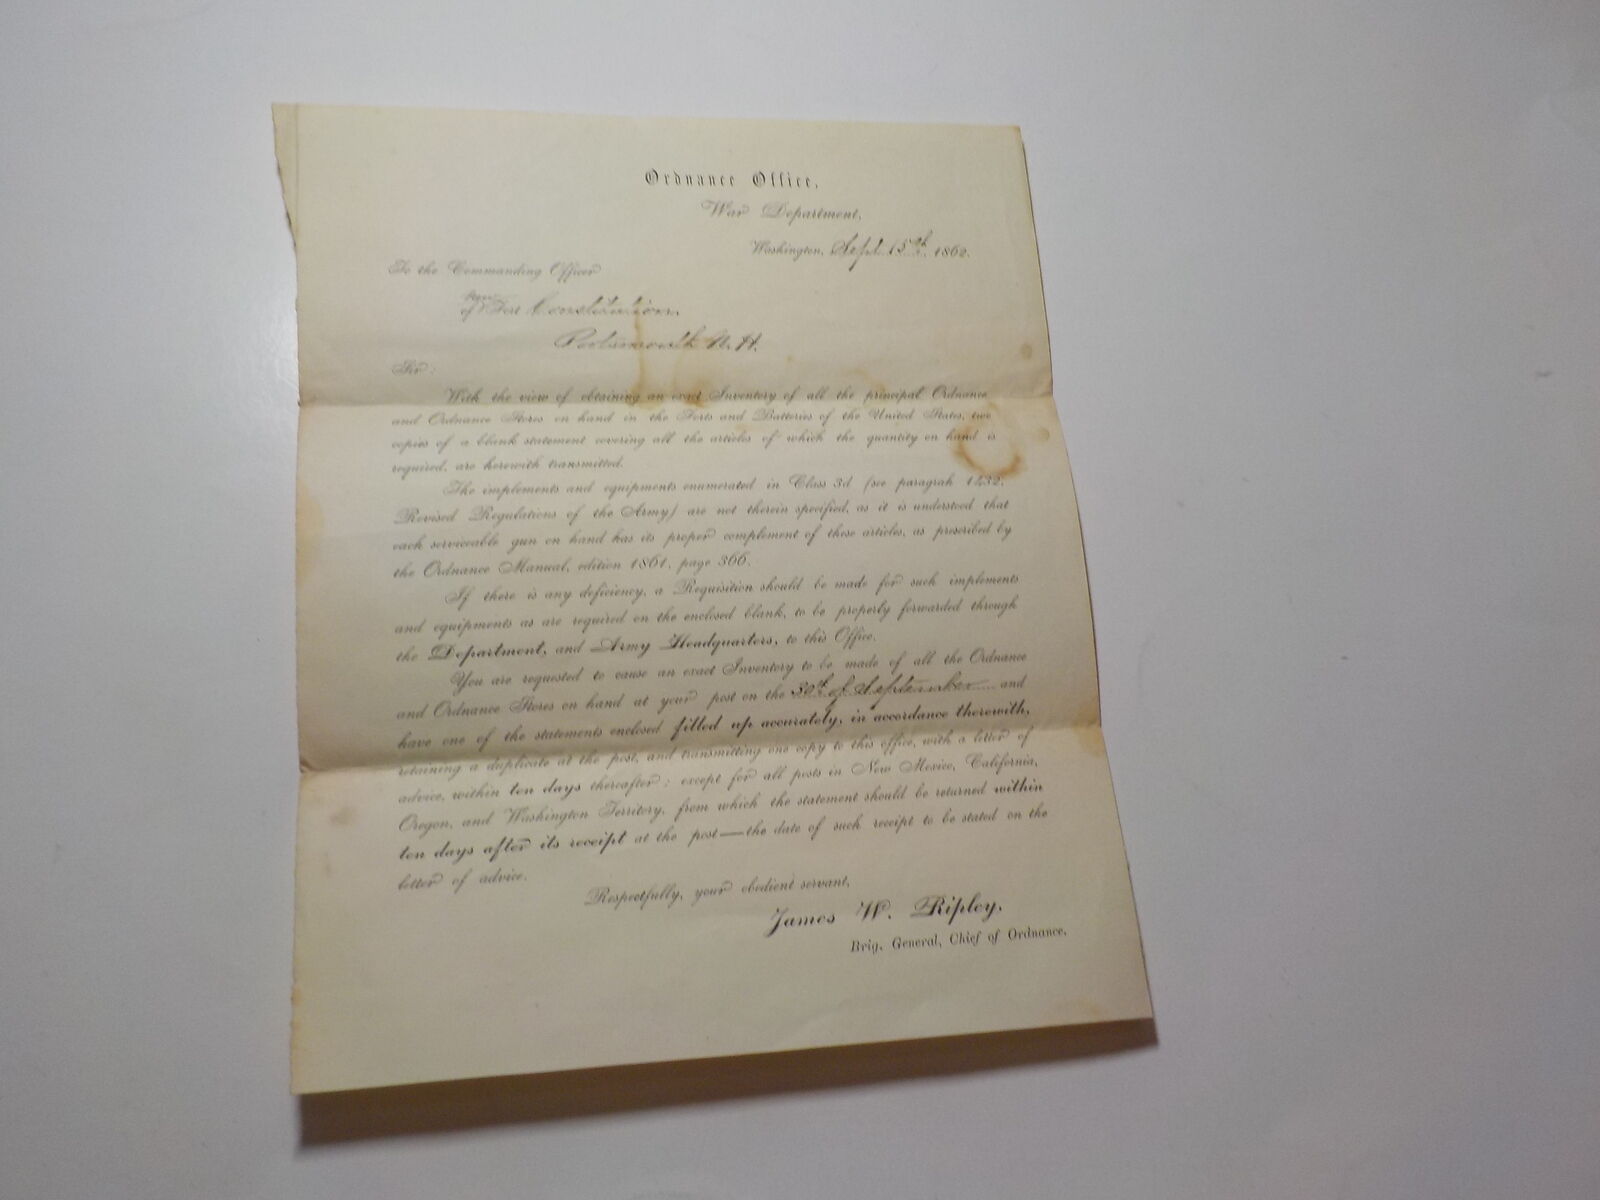 Ordnance Office,
War Department,
Washington, Sept 15th, 1862.
To the Commanding Officer
new
of Fort Constitution,
Portsmouth N. H.
Sir:
With the view of obtaining an exact Inventory of all the principal Ordnance
and Ordnance Stores on hand in the Forts and Batteries of the United States, two
copies of a blank statement covering all the articles of which the quantity on hand is
required, are herewith transmitted.
The implements and equipments enumerated in Class 3d (see paragrah 1432,
Revised Regulations of the Army) are not therein specified, as it is understood that
each serviceable gun on hand has its proper complement of these articles, as prescribed by
the Ordnance Manual, edition 1861, page 366.
If there is any deficiency, a Requisition should be made for such implements
and equipments as are required on the enclosed blank, to be properly forwarded through
the Department, and Army Headquarters, to this Office.
You are requested to cause an exact Inventory to be made of all the Ordnance
and Ordnance Stores on hand at your post on the 30th of September and
have one of the statements enclosed filled up accurately, in accordance therewith,
retaining a duplicate at the post, and transmitting one copy to this office, with a letter of
advice, within ten days thereafter; except for all posts in New Mexico, California,
Oregon, and Washington Territory, from which the statement should be returned within
ten days after its receipt at the post—the date of such receipt to be stated on the
letter of advice.
Respectfully, your obedient servant,
James W. Ripley,
Brig. General, Chief of Ordnance.